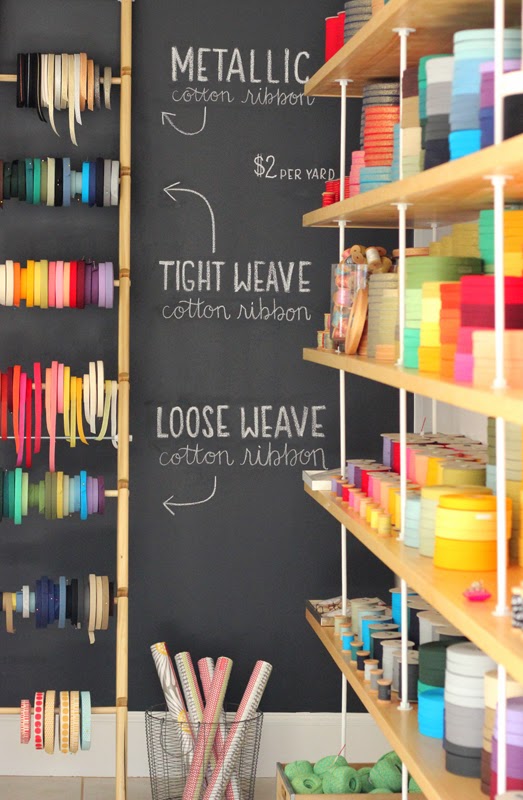 METALLIC
cotton ribbon
$2 PER YARD
TIGHT WEAVE
cotton ribbon
LOOSE WEAVE
cotton ribbon